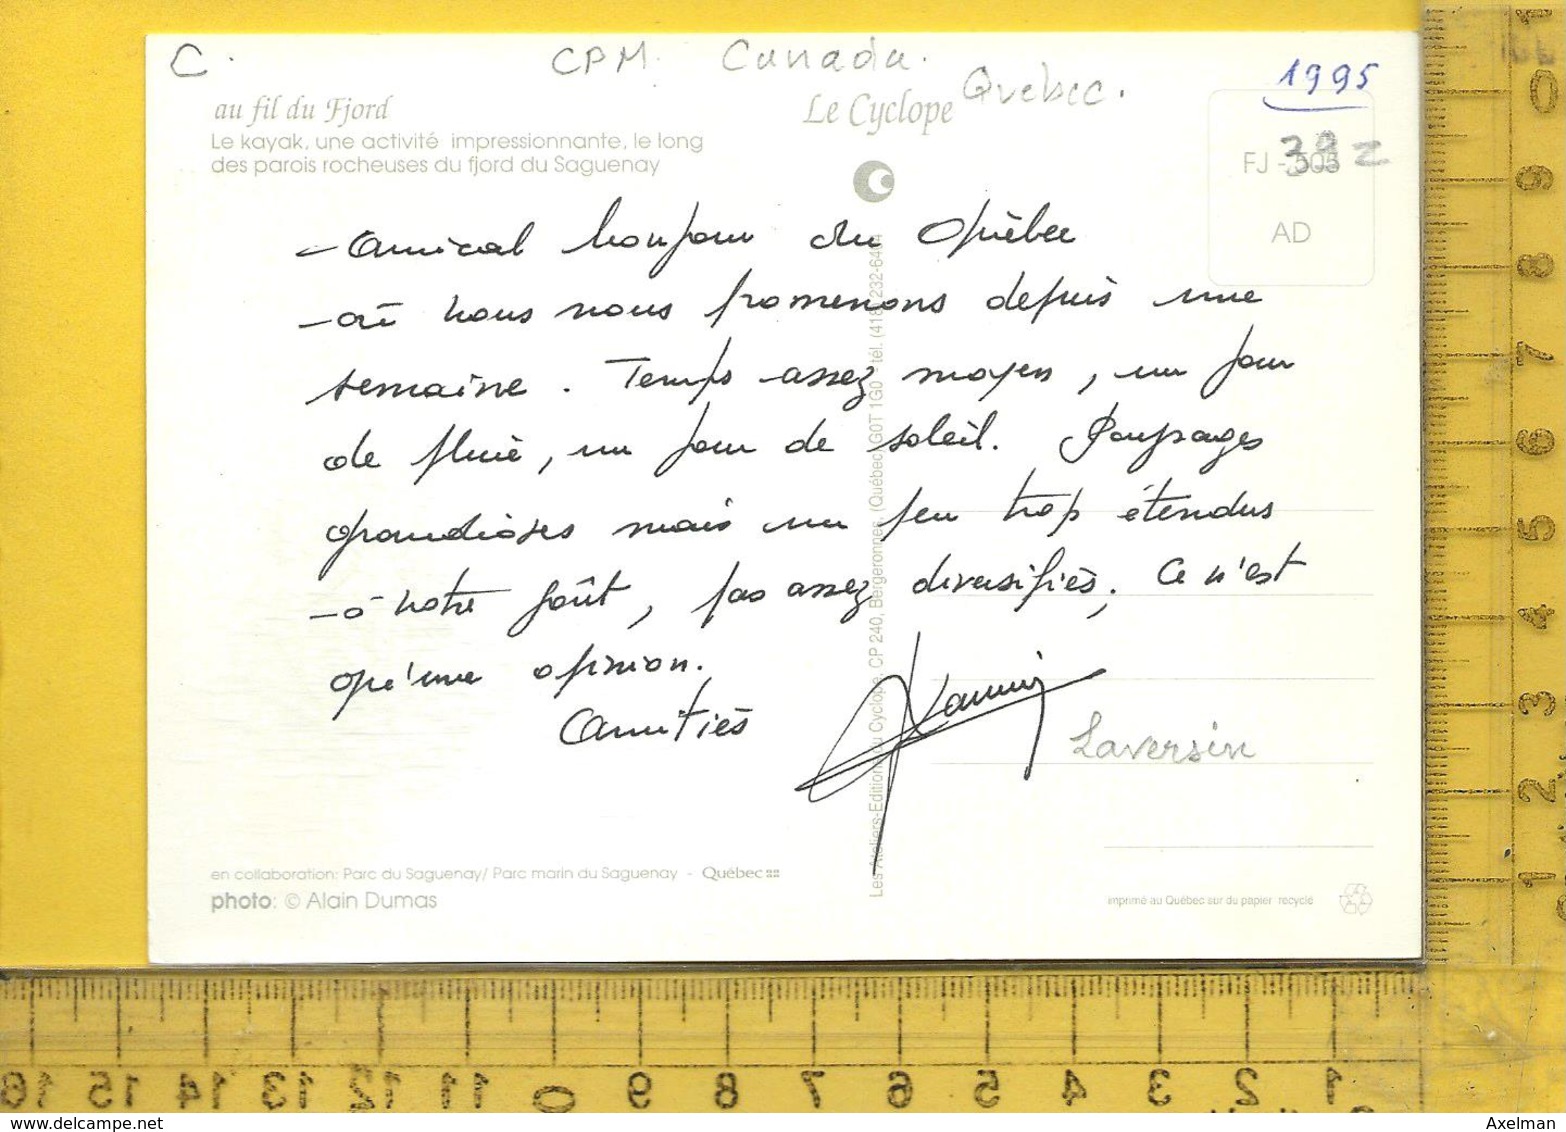 C.
CPM. Canada.
Quebec.
1995
au fil du Fjord
Le kayak, une activité impressionnante, le long
des parois rocheuses du fjord du Saguenay
Le Cyclope
FJ - 505
39 z
AD
- Amical bonjour du Québec
- où nous nous promenons depuis une
semaine. Temps assez moyen, un jour
de pluie, un jour de soleil. Paysages
grandioses mais un peu trop étendus
- à notre goût, pas assez diversifiés. Ce n'est
qu'une opinion.
Amitiés
Laversin
Les Ateliers-Editions du Cyclope, CP 240, Bergeronnes, (Québec) G0T 1G0 tél. (418) 232-64
en collaboration: Parc du Saguenay/ Parc marin du Saguenay - Québec
photo: © Alain Dumas
imprimé au Québec sur du papier recyclé
0
9
8
7
6
5
4
3
2
1
16 15 14 13 12 11 0 9 8 7 6 5 4 3 2 1
www.delcampe.net
Axelman